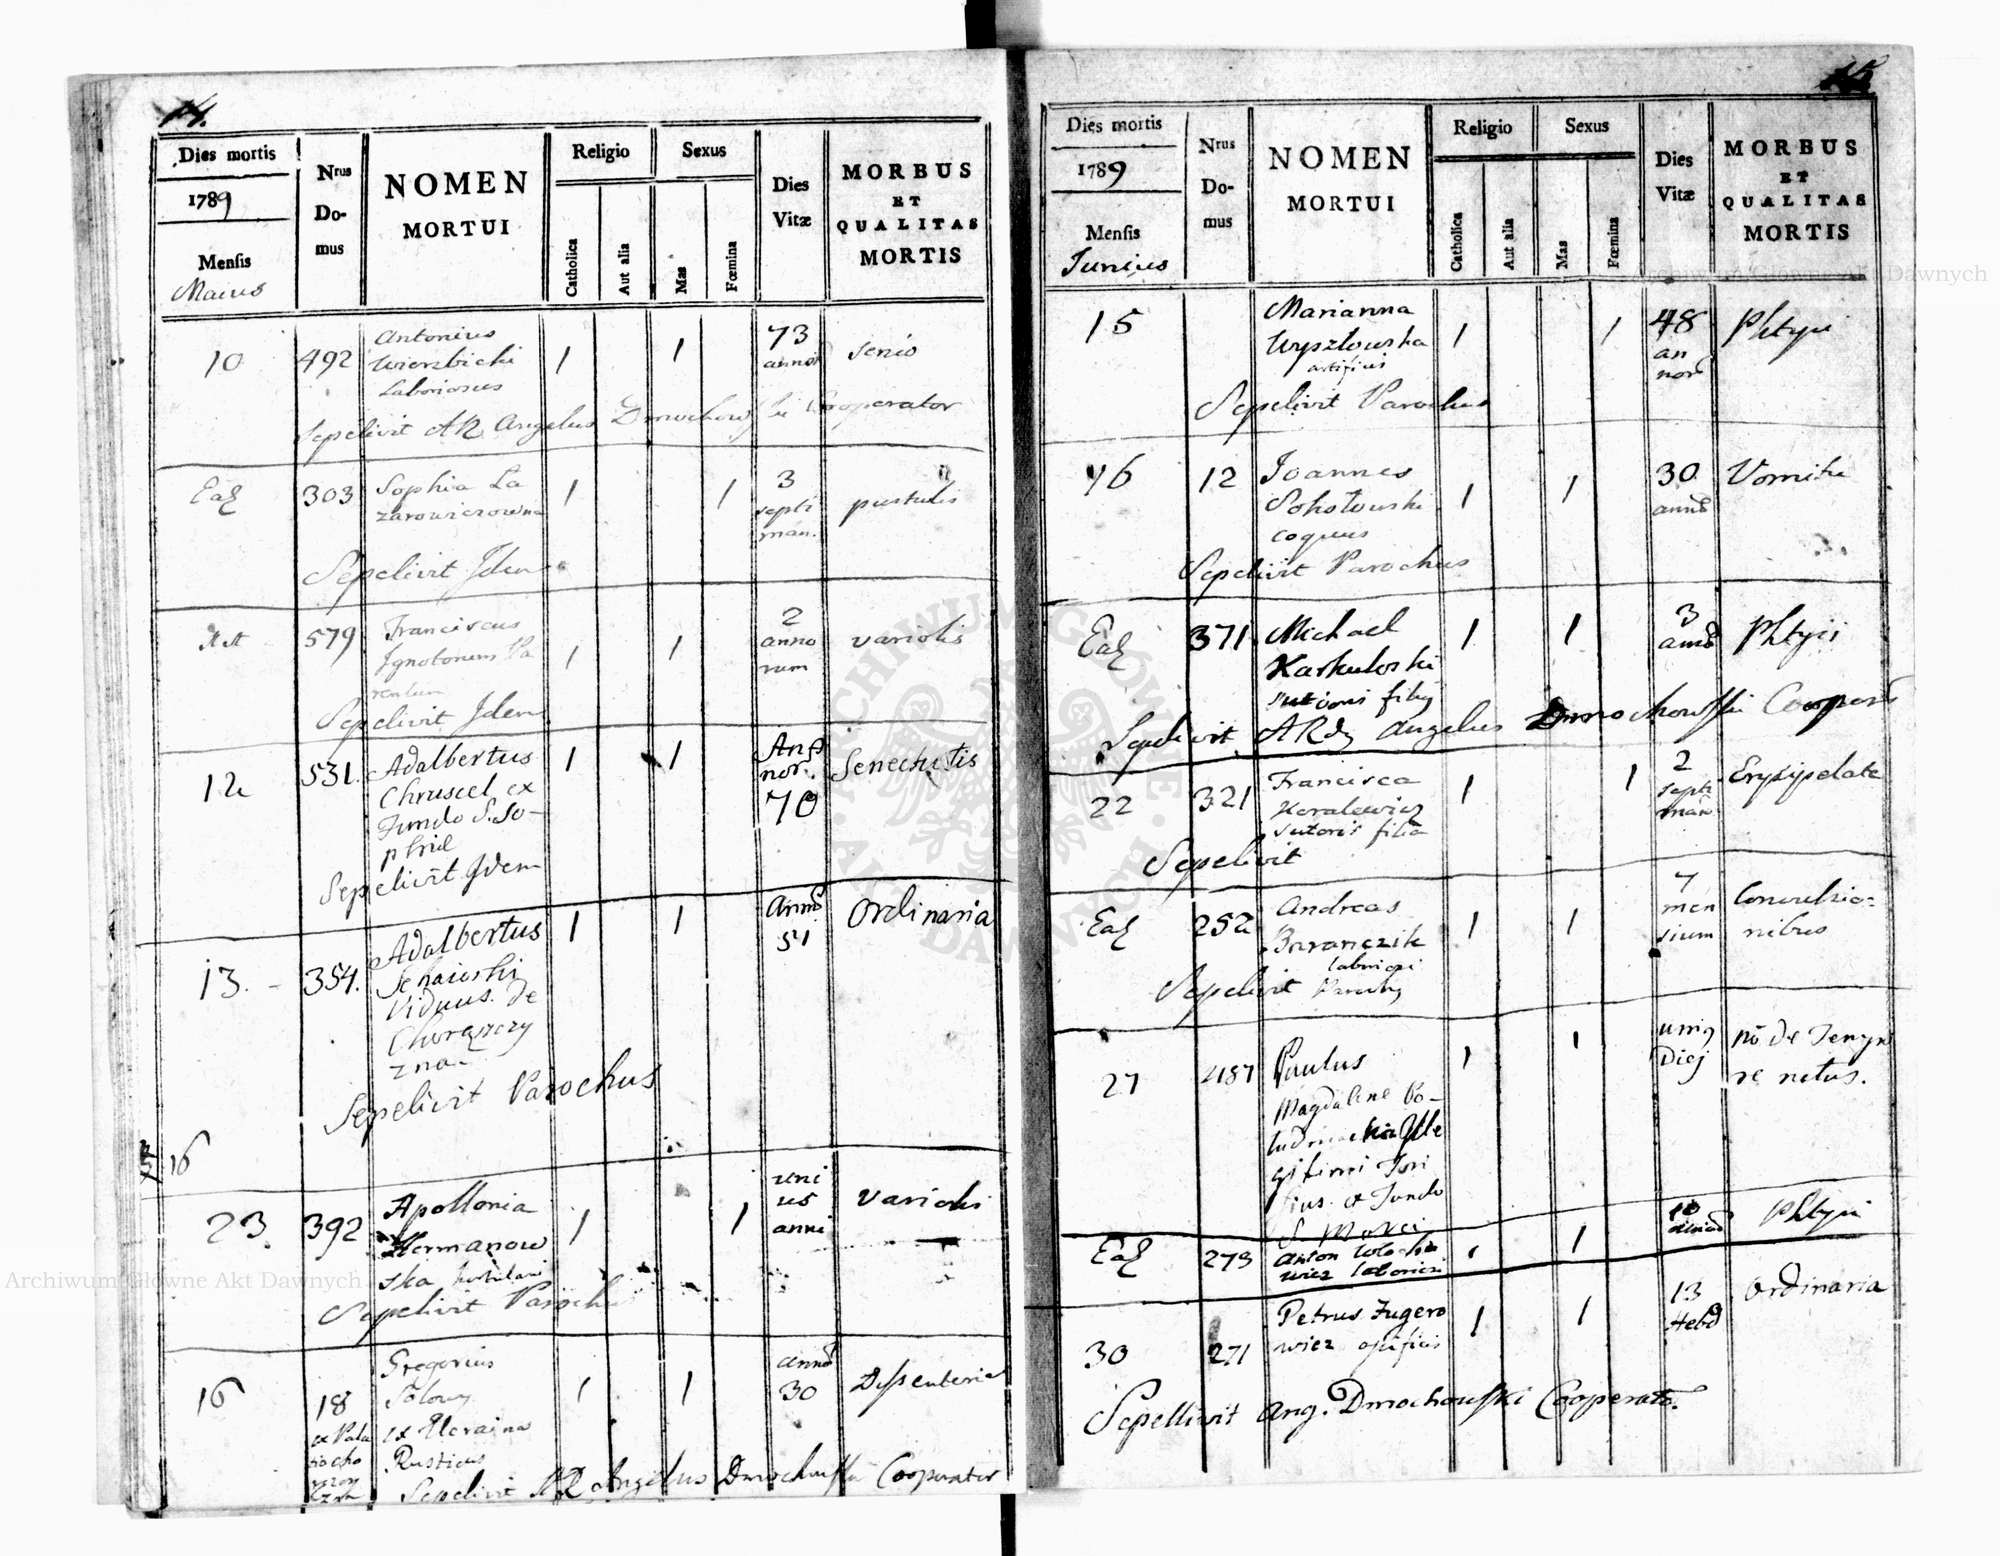 14.
Dies mortis
1789
Mensis
Maius
Nrus
Do-
mus
NOMEN
MORTUI
Religio
Catholica
Aut alia
Sexus
Mas
Fœmina
Dies
Vitæ
MORBUS
ET
QUALITAS
MORTIS
10
492
Antonius
Wierzbicki
Laboriosus
1
1
73
annor
senio
Sepelivit AR Angelus Dmochowski Cooperator
Ead
303
Sophia La
zarowiczowna
1
1
3
septi
man.
pustulis
Sepelivit Idem
579
Franciscus
Ignotorum Pa
rentum
1
1
2
anno
rum
variolis
Sepelivit Idem
12
531.
Adalbertus
Chruscel ex
Fundo S. So-
phiæ
1
1
An
nor.
70
Senectutis
Sepelivit Idem
13.
354.
Adalbertus
Viduus. de
Choręszczy
zna
1
1
Anno
51
Ordinaria
Sepelivit Parochus
16
23.
392
Apollonia
Hermanow
ska
1
1
uni
us
anni
variolis
Sepelivit Parochus
16
18
ex Pala
tio cho
Gregorius
ex Ucraina
Rusticus
1
1
anno
30
Dyssenteria
Sepelivit AR Angelus Dmochowski Cooperator
15
Dies mortis
1789
Mensis
Junius
Nrus
Do-
mus
NOMEN
MORTUI
Religio
Catholica
Aut alia
Sexus
Mas
Fœmina
Dies
Vitæ
MORBUS
ET
QUALITAS
MORTIS
15
Marianna
Wyszkowska
artificis
1
1
48
an
nor
Phtysi
Sepelivit Parochus
16
12
Joannes
Sokołowski
coquus
1
1
30
anno
Vomitu
Sepelivit Parochus
Ead
371
Michael
Karkuloski
sutoris filius
1
1
3
anno
Phtysi
Sepelivit ARdus Angelus Dmochowski Cooperator
22
321
Francisca
Koralewicz
sutoris filia
1
1
2
septi
man
Erysipelate
Sepelivit
Ead
252
Andreas
Baranczik
1
1
7
men
sium
Convulsio-
nibus
Sepelivit Parochus
27
487
Paulus
Magdalene
gitimi
ex Fundo
1
1
unius
Diei
no de Tempo
re natus.
Ead
273
Anton Woło
wicz
1
1
10
Phtysi
30
271
Petrus Zugero
wicz opificis
1
1
13
Hebd
ordinaria
Sepellivit Ang. Dmochowski Cooperator
Archiwum Główne Akt Dawnych
Archiwum Główne Akt Dawnych
ARCHIWUM GŁÓWNE AKT DAWNYCH